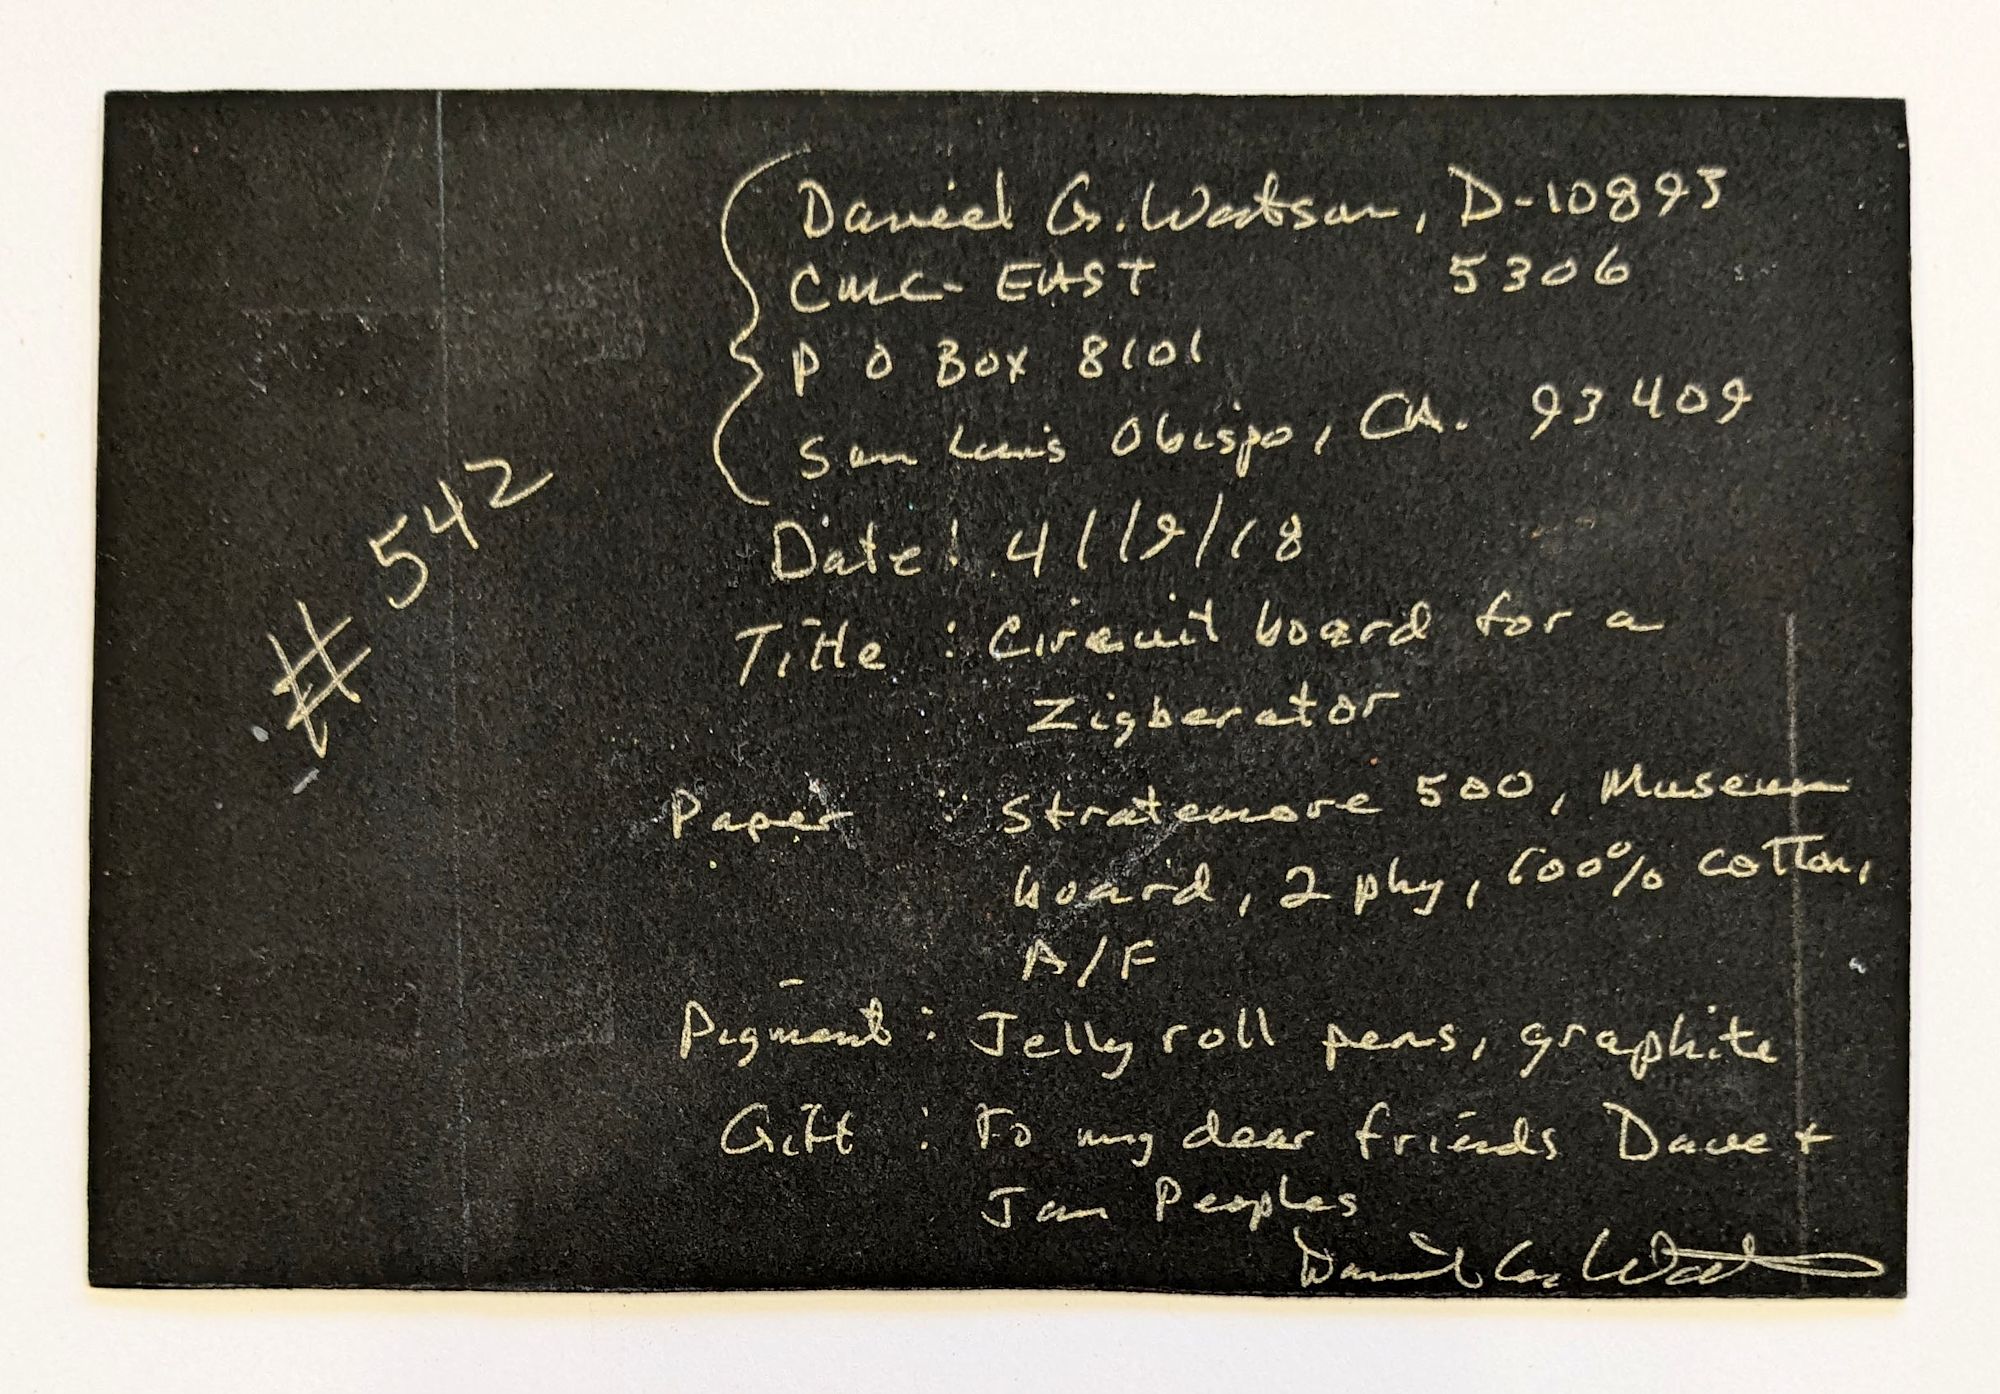 Daniel G. Watson, D-10893
CMC-EAST 5306
P O Box 8101
San Luis Obispo, CA. 93409
#542
Date: 4/19/18
Title : Circuit board for a
Zigberator
Paper : Strathmore 500, Museum
board, 2 ply, 100% cotton,
A/F
Pigment : Jelly roll pens, graphite
Gift : To my dear friends Dave +
Jan Peoples
Daniel G. Watson